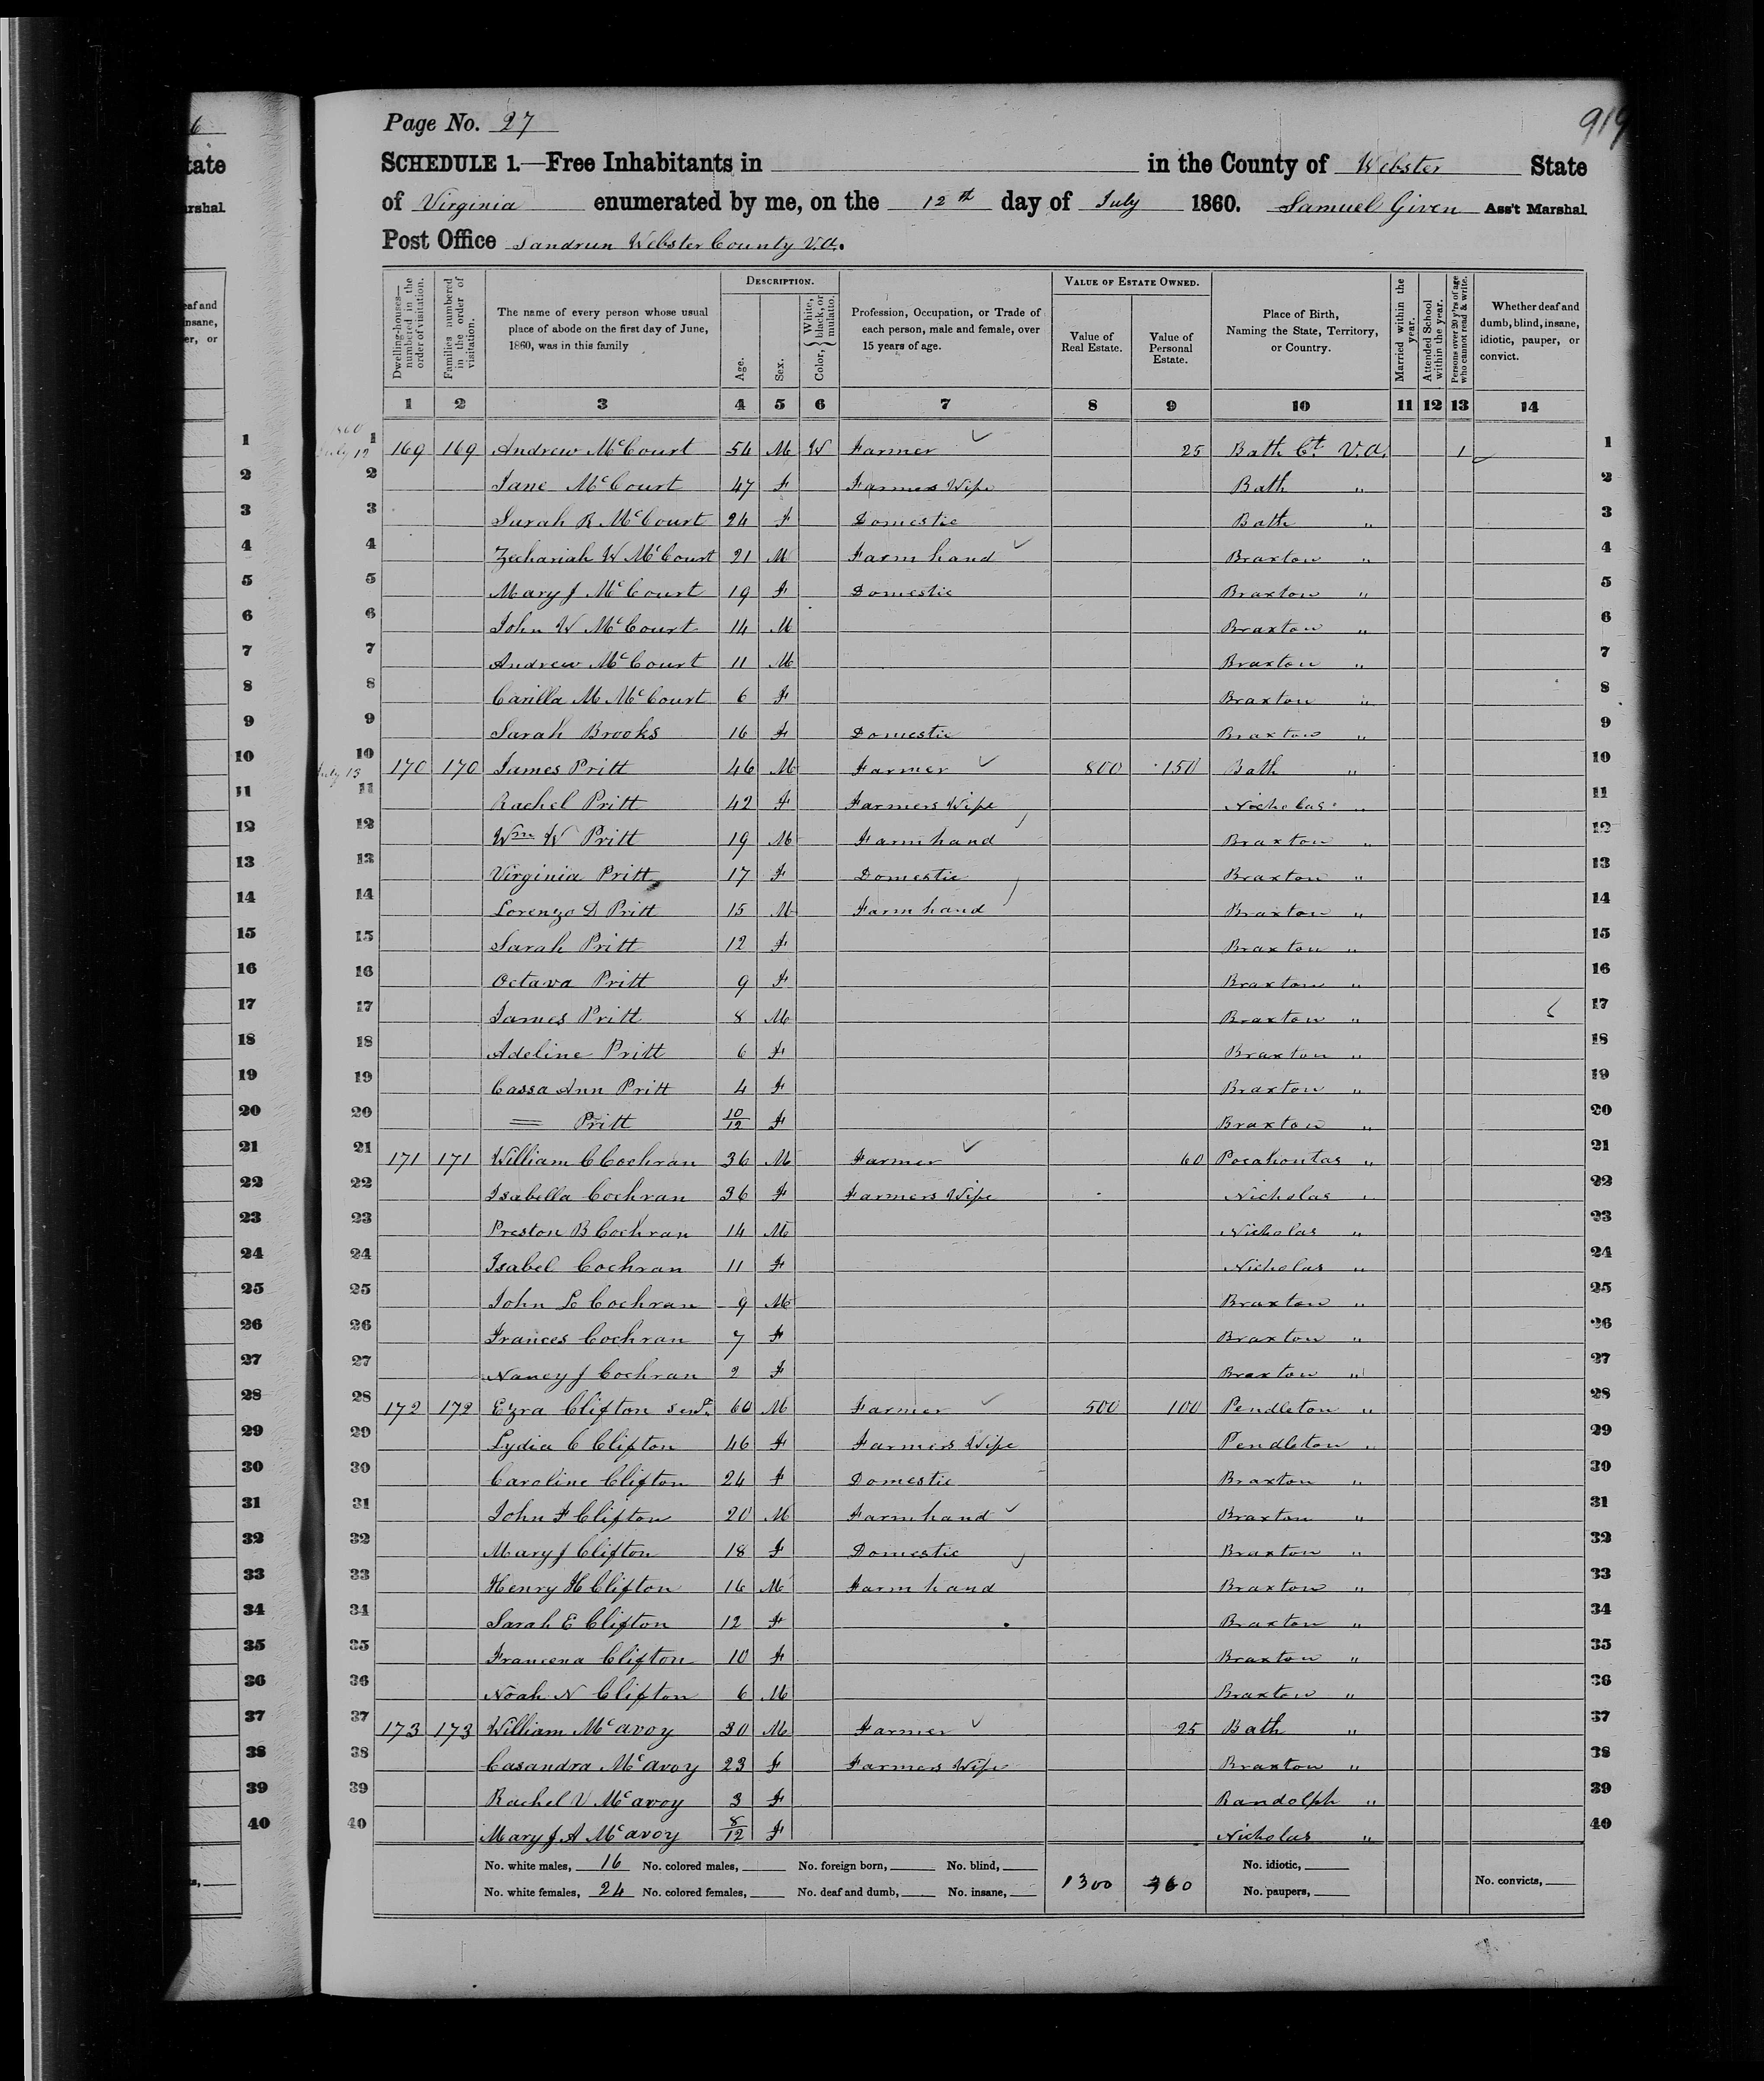 Page No. 27
919
SCHEDULE 1.—Free Inhabitants in in the County of Webster State
of Virginia enumerated by me, on the 12th day of July 1860. Samuel Given Ass't Marshal.
Post Office Sandrun Webster County V.A.
Dwelling-houses—numbered in the order of visitation.
Families numbered in the order of visitation.
The name of every person whose usual place of abode on the first day of June, 1860, was in this family
DESCRIPTION.
Age.
Sex.
Color, { White, black, or mulatto.
Profession, Occupation, or Trade of each person, male and female, over 15 years of age.
VALUE OF ESTATE OWNED.
Value of Real Estate.
Value of Personal Estate.
Place of Birth, Naming the State, Territory, or Country.
Married within the year.
Attended School within the year.
Persons over 20 y'rs of age who cannot read & write.
Whether deaf and dumb, blind, insane, idiotic, pauper, or convict.
1 2 3 4 5 6 7 8 9 10 11 12 13 14
July 12 1 169 169 Andrew McCourt 54 M W Farmer 25 Bath Ct. V.A. 1 1
2 Jane McCourt 47 F Farmers Wife Bath " 2
3 Sarah R McCourt 24 F Domestic Bath " 3
4 Zechariah W McCourt 21 M Farm hand Braxton " 4
5 Mary J McCourt 19 F Domestic Braxton " 5
6 John W McCourt 14 M Braxton " 6
7 Andrew McCourt 11 M Braxton " 7
8 Carilla M McCourt 6 F Braxton " 8
9 Sarah Brooks 16 F Domestic Braxton " 9
July 13 10 170 170 James Pritt 46 M Farmer 800 150 Bath " 10
11 Rachel Pritt 42 F Farmers Wife Nicholas " 11
12 Wm W Pritt 19 M Farm hand Braxton " 12
13 Virginia Pritt 17 F Domestic Braxton " 13
14 Lorenzo D Pritt 15 M Farm hand Braxton " 14
15 Sarah Pritt 12 F Braxton " 15
16 Octava Pritt 9 F Braxton " 16
17 James Pritt 8 M Braxton " 17
18 Adeline Pritt 6 F Braxton " 18
19 Cassa Ann Pritt 4 F Braxton " 19
20 = Pritt 10/12 F Braxton " 20
21 171 171 William C Cochran 36 M Farmer 60 Pocahontas " 21
22 Isabella Cochran 36 F Farmers Wife Nicholas " 22
23 Preston B Cochran 14 M Nicholas " 23
24 Isabel Cochran 11 F Nicholas " 24
25 John L Cochran 9 M Braxton " 25
26 Frances Cochran 7 F Braxton " 26
27 Nancy J Cochran 2 F Braxton " 27
28 172 172 Ezra Clifton 60 M Farmer 500 100 Pendleton " 28
29 Lydia C Clifton 46 F Farmers Wife Pendleton " 29
30 Caroline Clifton 24 F Domestic Braxton " 30
31 John F Clifton 20 M Farm hand Braxton " 31
32 Mary J Clifton 18 F Domestic Braxton " 32
33 Henry H Clifton 16 M Farm hand Braxton " 33
34 Sarah E Clifton 12 F Braxton " 34
35 Francena Clifton 10 F Braxton " 35
36 Noah N Clifton 6 M Braxton " 36
37 173 173 William Mcavoy 30 M Farmer 25 Bath " 37
38 Casandra Mcavoy 23 F Farmers Wife Braxton " 38
39 Rachel V Mcavoy 3 F Randolph " 39
40 Mary J A Mcavoy 8/12 F Nicholas " 40
No. white males, 16 No. colored males, No. foreign born, No. blind, 1300 360 No. idiotic, No. convicts,
No. white females, 24 No. colored females, No. deaf and dumb, No. insane, No. paupers,